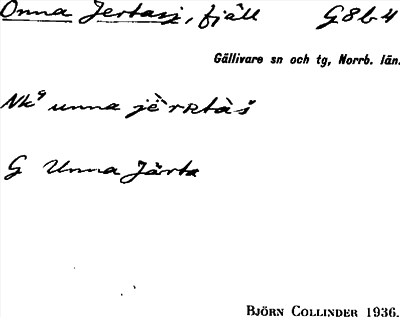 Onna Jertasj, fjäll G8b4
Gällivare sn och tg, Norrb. län.
Nk⁹ unna jèrʀtàš
G Unna Järta
BJÖRN COLLINDER 1936.